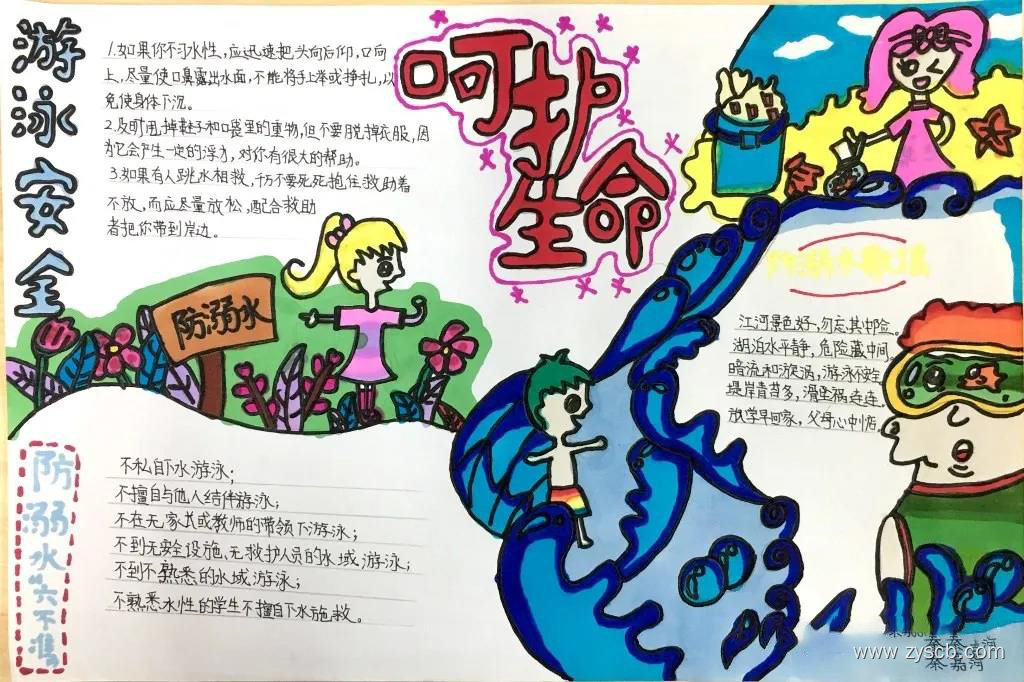 游泳安全
1.如果你不习水性，应迅速把头向后仰，口向
上，尽量使口鼻露出水面，不能将手上举或挣扎，以
免使身体下沉。
2.及时甩掉鞋子和口袋里的重物，但不要脱掉衣服，因
为它会产生一定的浮力，对你有很大的帮助。
3.如果有人跳水相救，千万不要死死抱住救助者
不放，而应尽量放松，配合救助
者把你带到岸边。
呵护
生命
防溺水
防溺水歌谣
江河景色好，勿忘其中险。
湖泊水平静，危险藏中间。
暗流和漩涡，游泳不安全
堤岸青苔多，滑坠祸连连，
放学早回家，父母心中悦。
防溺水“六不准”
不私自下水游泳；
不擅自与他人结伴游泳；
不在无家长或教师的带领下游泳；
不到无安全设施、无救护人员的水域游泳；
不到不熟悉的水域游泳；
不熟悉水性的学生不擅自下水施救。
www.zyscb.com